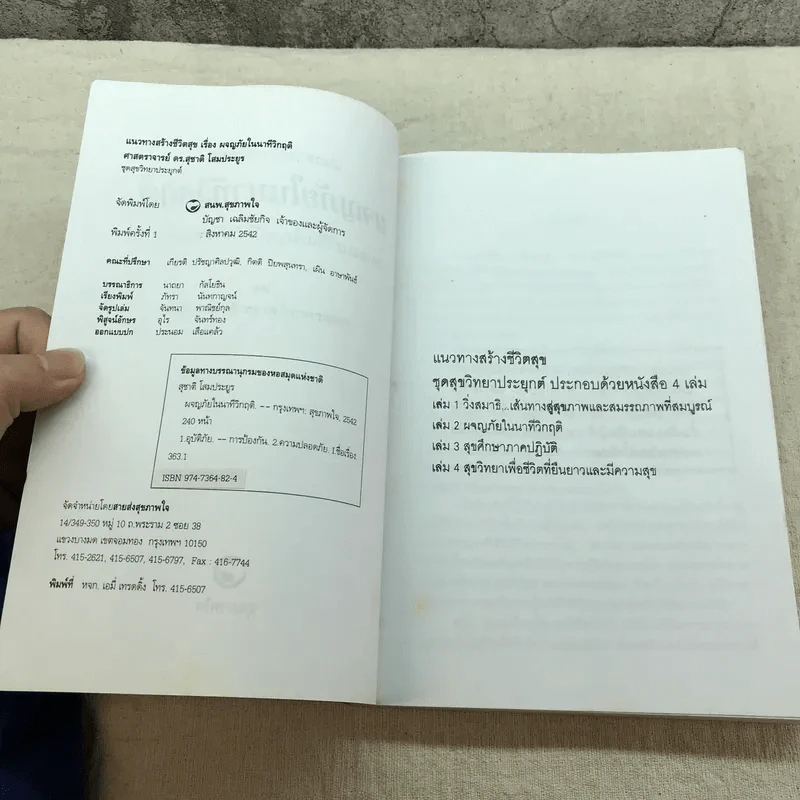 แนวทางสร้างชีวิตสุข เรื่อง ผจญภัยในนาทีวิกฤติ
ศาสตราจารย์ ดร.สุชาติ โสมประยูร
ชุดสุขวิทยาประยุกต์
จัดพิมพ์โดย สนพ.สุขภาพใจ
บัญชา เฉลิมชัยกิจ เจ้าของและผู้จัดการ
พิมพ์ครั้งที่ 1 : สิงหาคม 2542
คณะที่ปรึกษา เกียรติ ปรัชญาศิลปวุฒิ, กิตติ ปิยพสุนทรา, เผิน อาษาพันธ์
บรรณาธิการ นาถยา กัลโยธิน
เรียงพิมพ์ ภัทรา นันทกาญจน์
จัดรูปเล่ม จันทนา พาณิชย์กุล
พิสูจน์อักษร อุไร จันทร์ทอง
ออกแบบปก ประนอม เสือแคล้ว
ข้อมูลทางบรรณานุกรมของหอสมุดแห่งชาติ
สุชาติ โสมประยูร
ผจญภัยในนาทีวิกฤติ. -- กรุงเทพฯ: สุขภาพใจ, 2542
240 หน้า
1.อุบัติภัย. -- การป้องกัน. 2.ความปลอดภัย. I.ชื่อเรื่อง
363.1
ISBN 974-7364-82-4
จัดจำหน่ายโดยสายส่งสุขภาพใจ
14/349-350 หมู่ 10 ถ.พระราม 2 ซอย 38
แขวงบางมด เขตจอมทอง กรุงเทพฯ 10150
โทร. 415-2621, 415-6507, 415-6797, Fax : 416-7744
พิมพ์ที่ หจก. เอมี่ เทรดดิ้ง โทร. 415-6507
แนวทางสร้างชีวิตสุข
ชุดสุขวิทยาประยุกต์ ประกอบด้วยหนังสือ 4 เล่ม
เล่ม 1 วิ่งสมาธิ...เส้นทางสู่สุขภาพและสมรรถภาพที่สมบูรณ์
เล่ม 2 ผจญภัยในนาทีวิกฤติ
เล่ม 3 สุขศึกษาภาคปฏิบัติ
เล่ม 4 สุขวิทยาเพื่อชีวิตที่ยืนยาวและมีความสุข